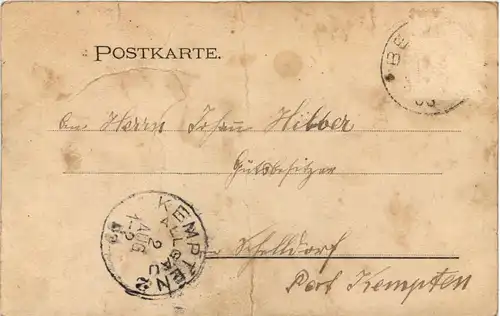 POSTKARTE.
BE
An Herrn Johann Hibber
Gutsbesitzer
Schelldorf
Post Kempten
KEMPTEN
ALLGÄU
2 AUG
1-2